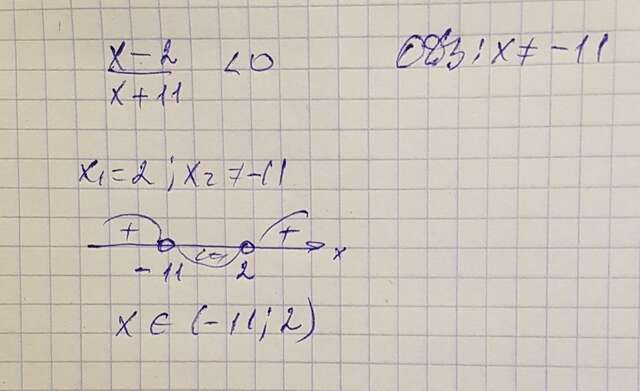 x-2 / x+11 < 0
ОДЗ: x ≠ -11
x₁=2; x₂ ≠ -11
+ (-) + x
-11 2
x ∈ (-11; 2)